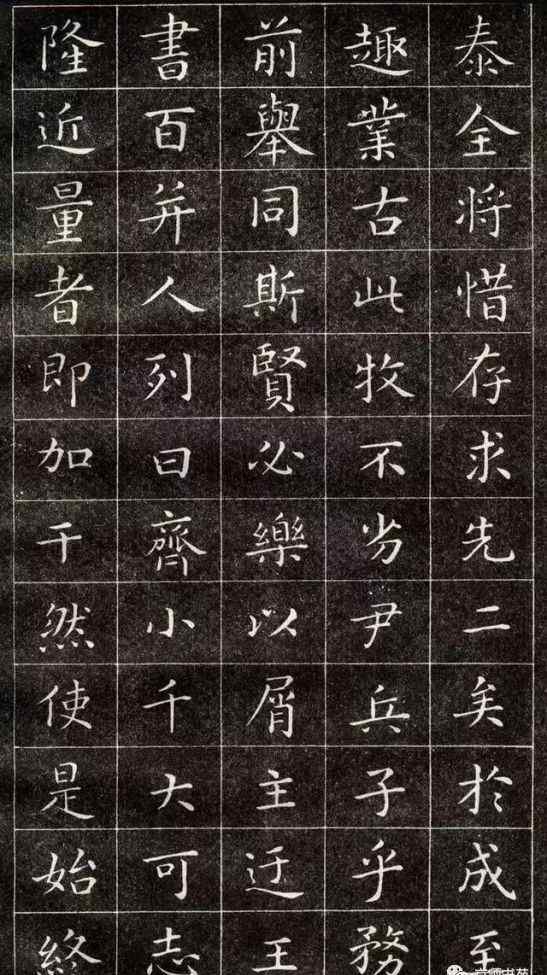 泰全将惜存求先二矣於成至
趣業古此牧不兵子乎務
前舉同斯賢必樂以屑主迂王
書百并人列曰齊小千大可志
隆近量者即加千然使是始終